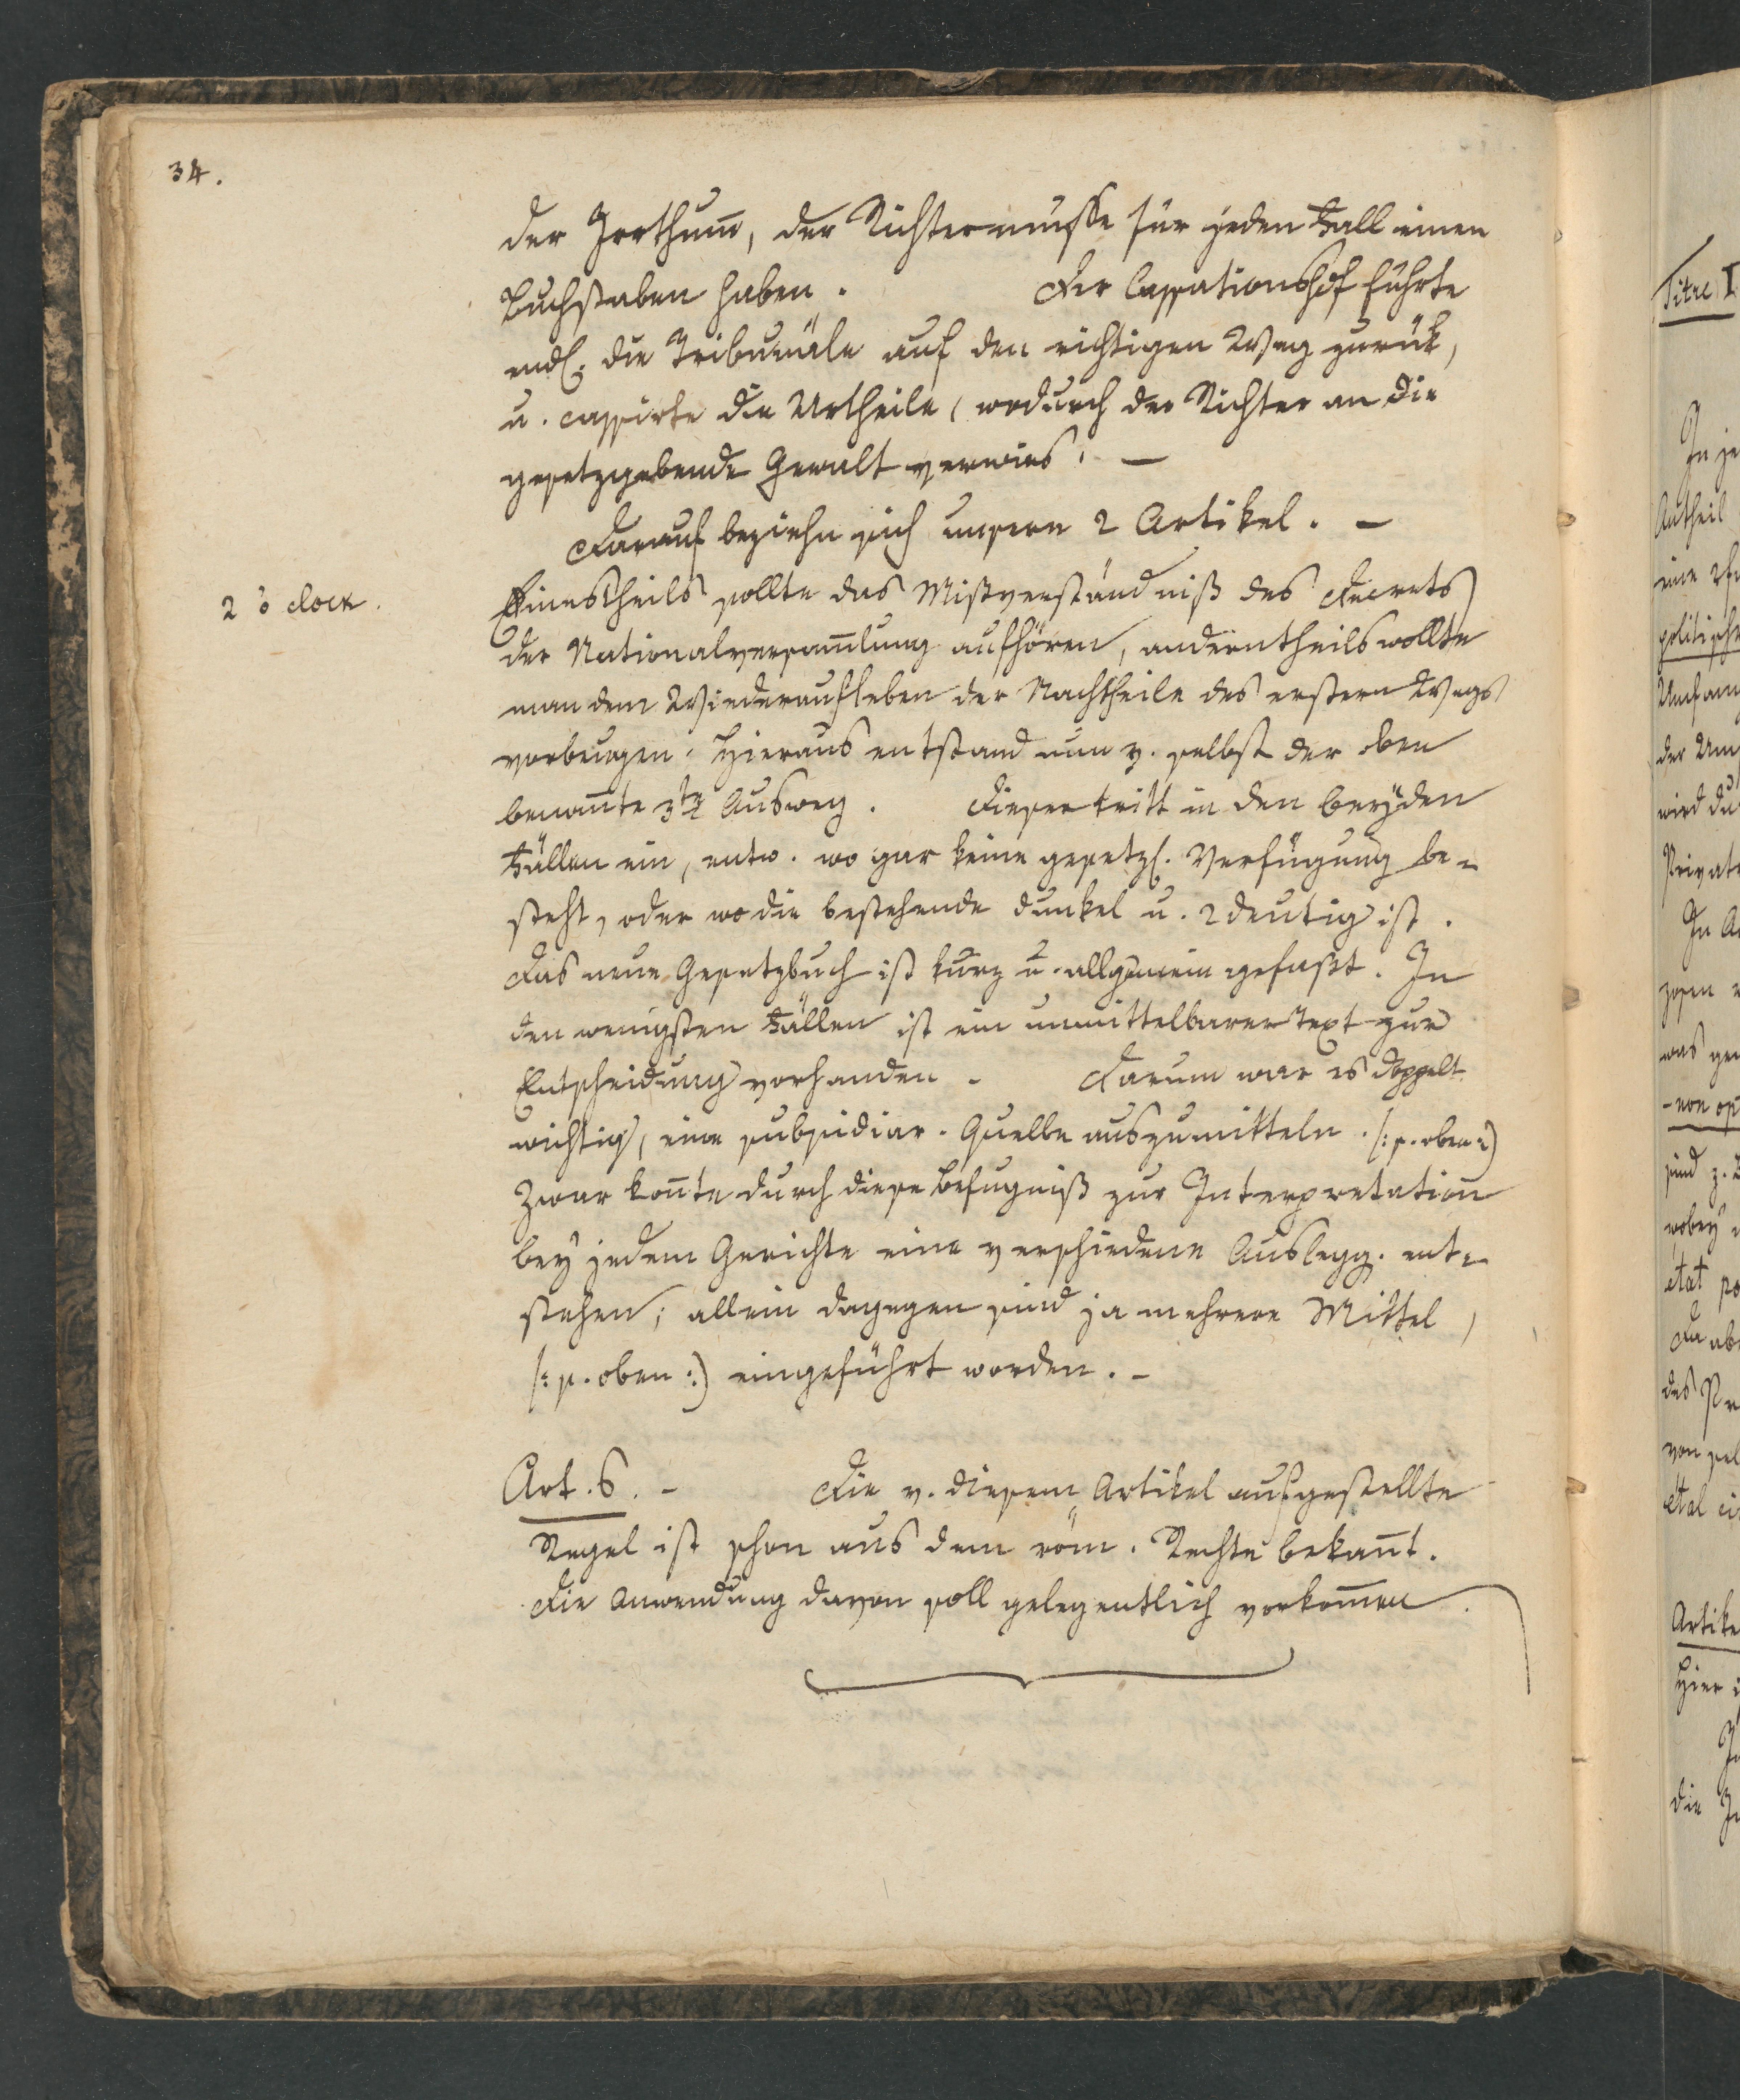 34.
der Irrthum̅, der Richter müsse für jeden Fall einen
Buchstaben haben. Der Cassationshof führte
endl. die Tribunäle auf den richtigen Weg zurük,
u. cassirte die Urtheile, wodurch der Richter an die
gesetzgebende Gewalt verwies. —
Darauf beziehn sich unsere 2 Artikel. —
2 o clock.
Einestheils sollte das Mißverständniß des Decrets
der Nationalversam̅lung aufhören, anderntheils wollte
man dem Wiederaufleben der Nachtheile des erstern Wegs
vorbeugen. Hieraus entstand nun v. selbst der oben
benan̅te 3te Ausweg. Dieser tritt in den beyden
Fällen ein, entw. wo gar keine gesetzl. Verfügung be-
steht, oder wo die bestehende dunkel u. 2deutig ist.
Das neue Gesetzbuch ist kurz u. allgemein gefaßt. In
den wenigsten Fällen ist ein unmittelbarer Text zur
Entscheidung vorhanden. Darum war es doppelt
wichtig, eine subsidiar. Quelle auszumitteln. /: s. oben :)
Zwar kon̅te durch diese Befugniß zur Interpretation
bey jedem Gerichte eine verschiedene Auslegg. ent-
stehen; allein dagegen sind ja mehrere Mittel,
/: s. oben :) eingeführt worden. -
Art. 6. - Die v. diesem Artikel aufgestellte
Regel ist schon aus dem röm. Rechte bekan̅t.
Die Anwendung davon soll gelegentlich vorkom̅en.
Titre I
In je
Antheil
eine
politische
Umfang
der Um
wird du
Privat
In A
was
- non op
sind z. B
wobey
état po
Da abe
des Pr
von sel
état ci
Artike
Hier i
In
die In